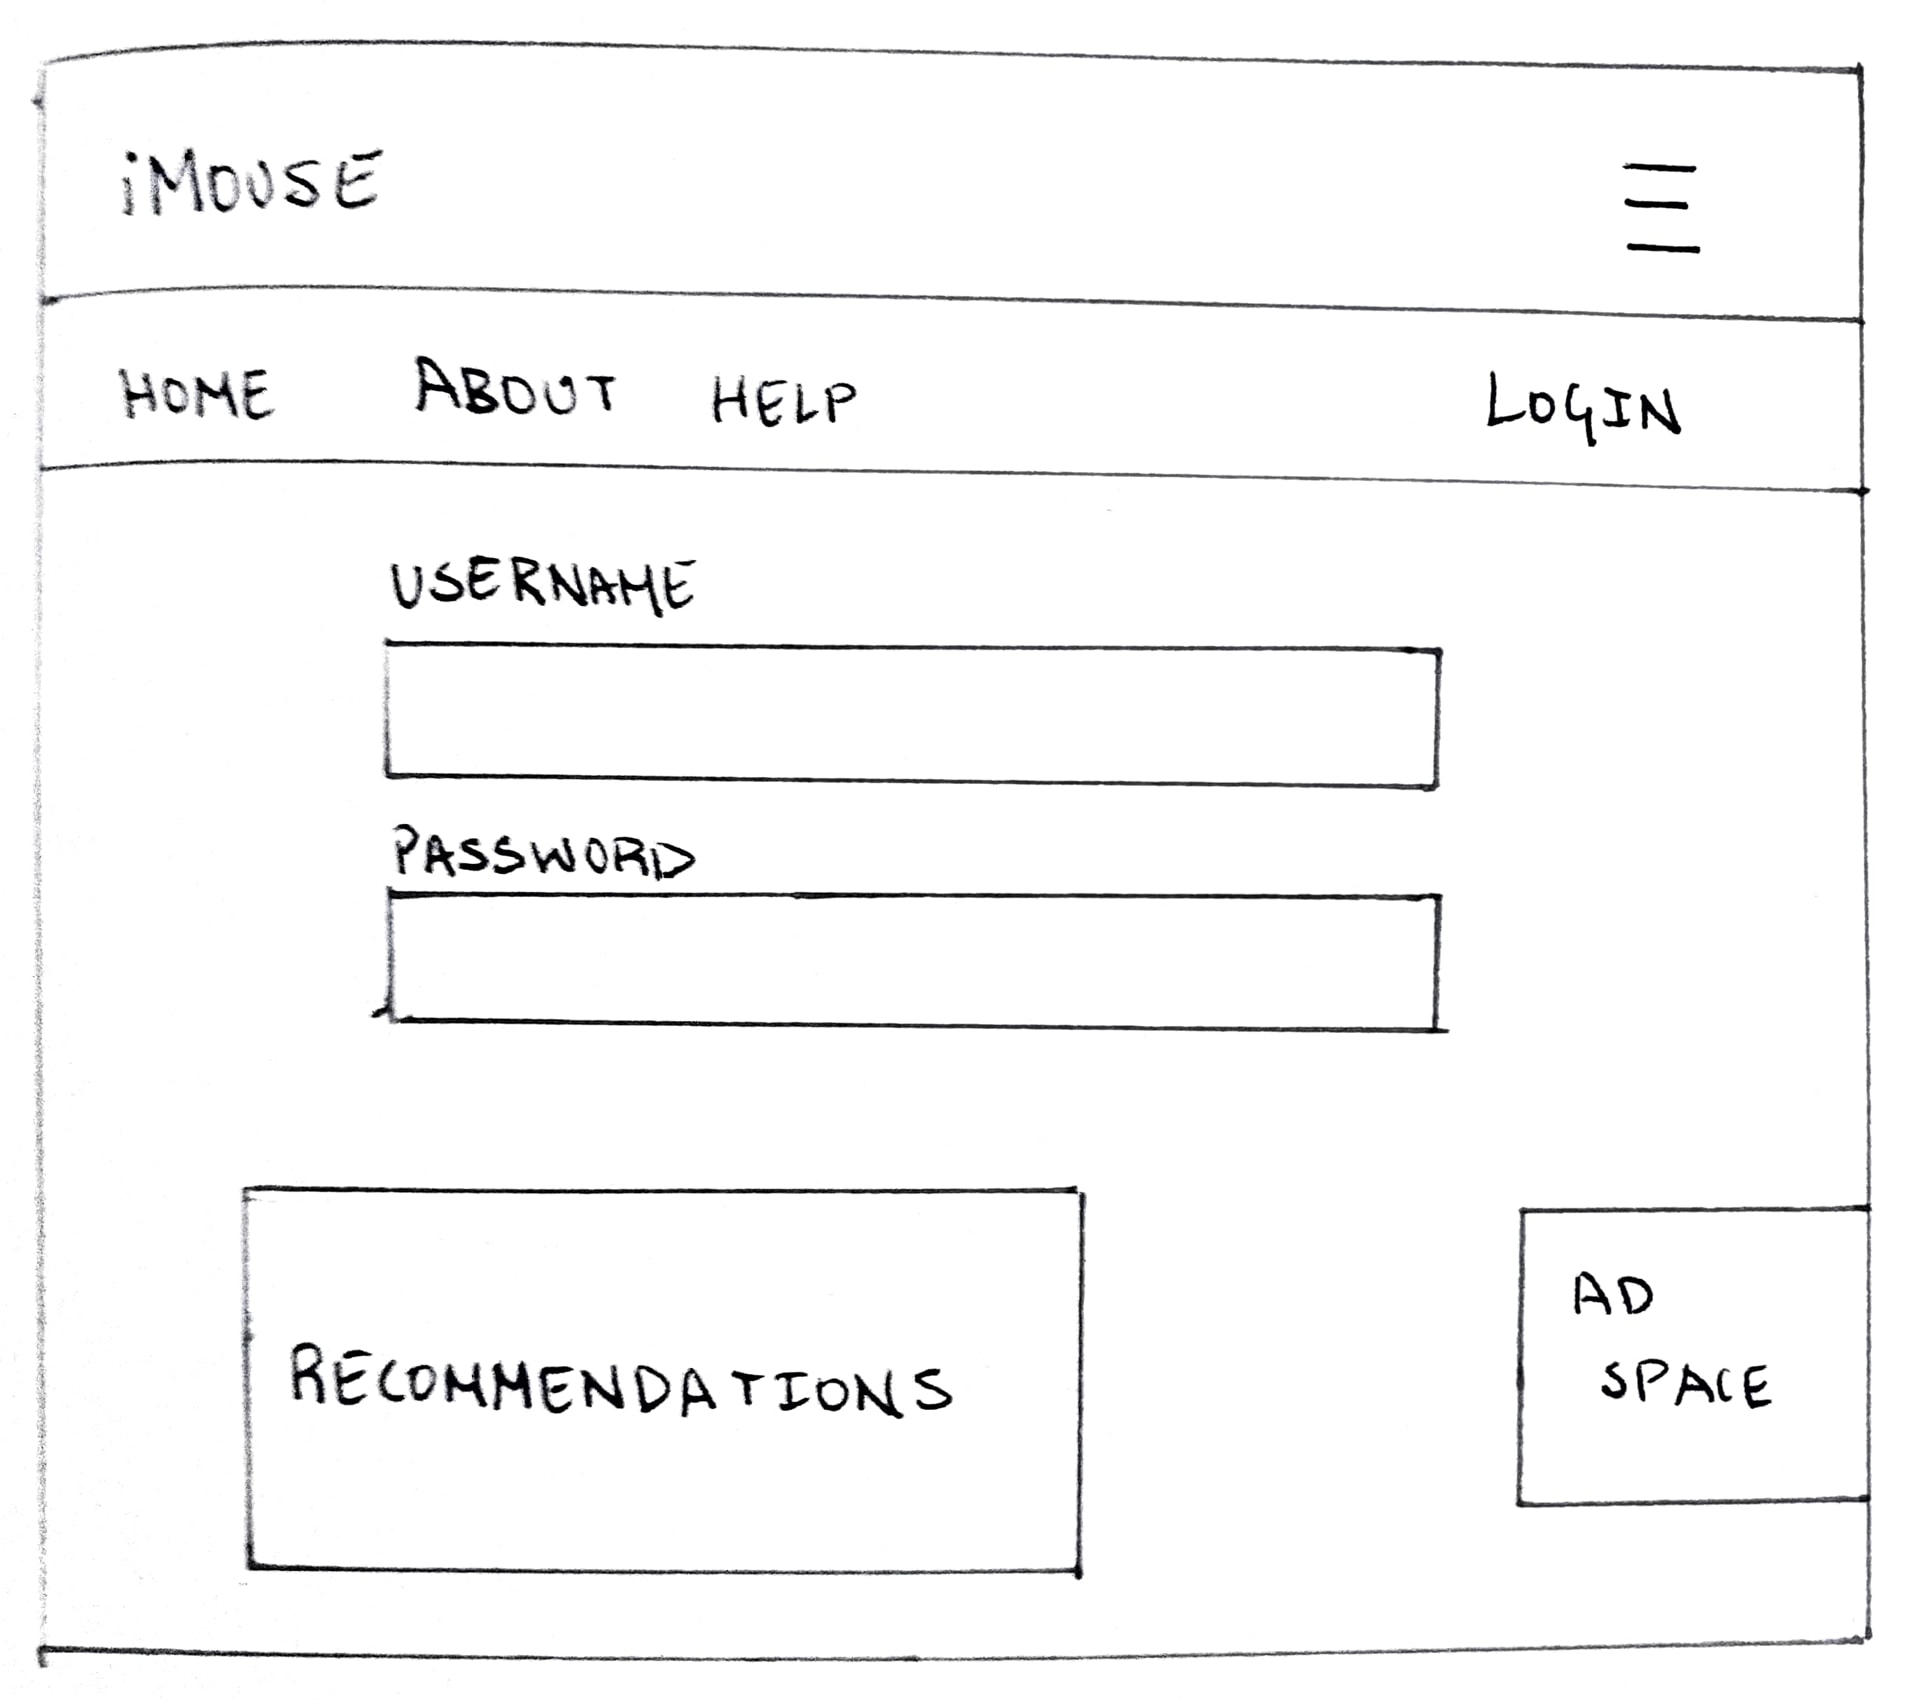 iMOUSE
HOME ABOUT HELP LOGIN
USERNAME
PASSWORD
RECOMMENDATIONS
AD
SPACE